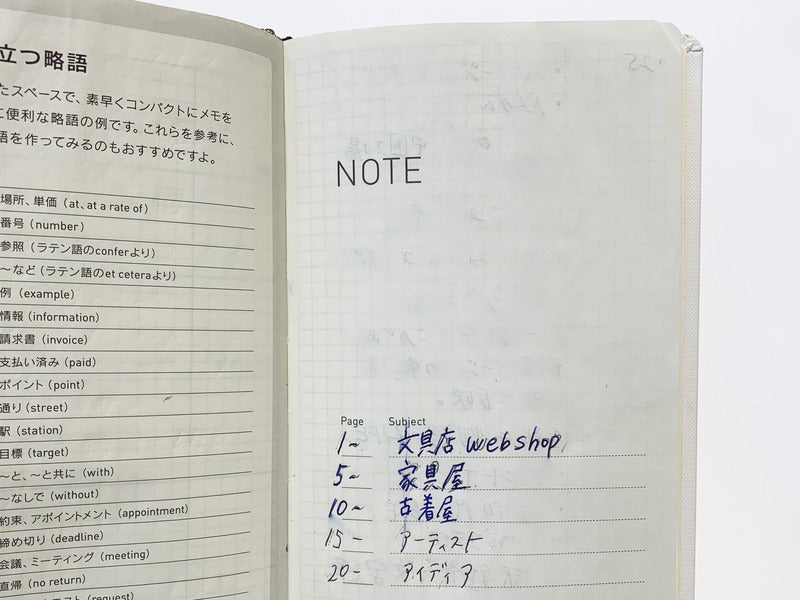 立つ略語
たスペースで、素早くコンパクトにメモを
に便利な略語の例です。これらを参考に、
語を作ってみるのもおすすめですよ。
場所、単価（at、at a rate of）
番号（number）
参照（ラテン語のconferより）
～など（ラテン語のet ceteraより）
例（example）
情報（information）
請求書（invoice）
支払い済み（paid）
ポイント（point）
通り（street）
駅（station）
目標（target）
～と、～と共に（with）
～なしで（without）
約束、アポイントメント（appointment）
締め切り（deadline）
会議、ミーティング（meeting）
直帰（no return）
（request）
NOTE
Page Subject
1~ 文具店 webshop
5~ 家具屋
10~ 古着屋
15- アーティスト
20- アイディア